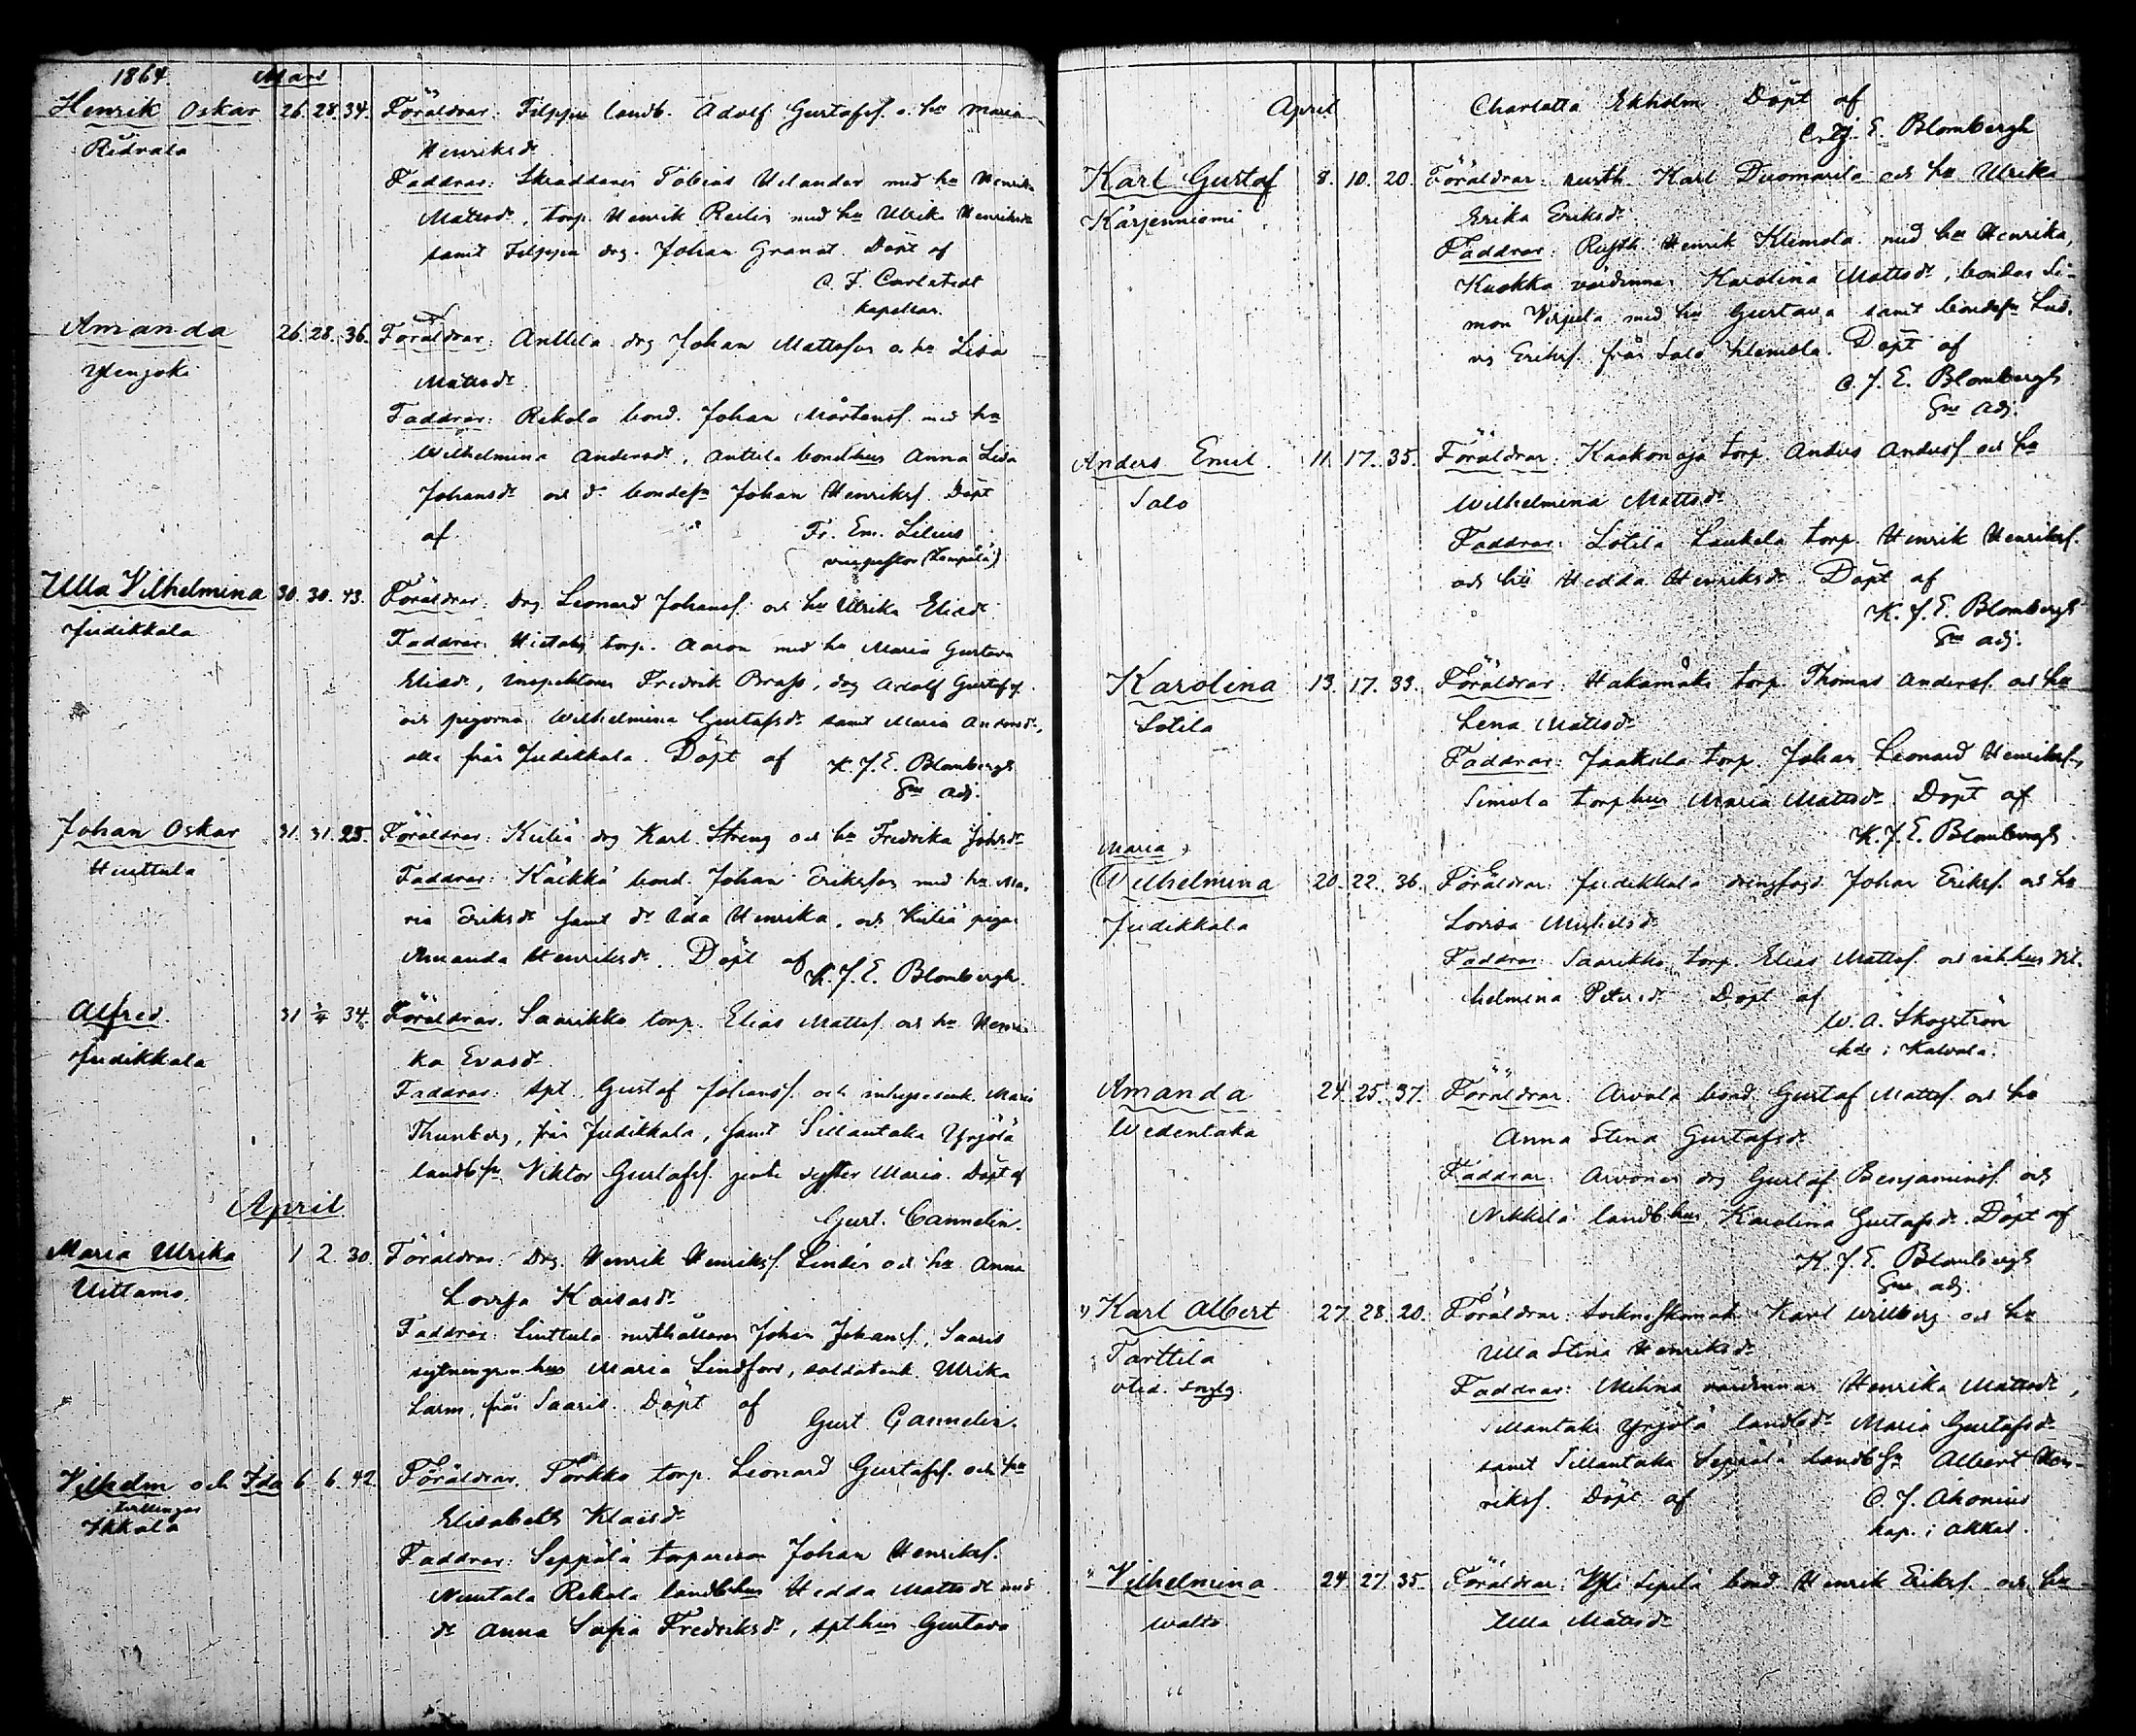 1864 Mars
Henrik Oskar 26. 28. 34. Föräldrar: Filppu landb. Adolf Gustafsf. o. hu Maria
Ridvala Henriksdr
Faddrar: Skraddaren Tobias Helander med hu Henrika
Mattsdr, torp. Henrik Reilin med hu Ulrika Henriksdr
samt Filppu drg. Johan Granat. Döpt af
C. F. Carlstedt
kapellan.
Amanda 26. 28. 36. Föräldrar: Anttila drg Johan Mattsson o. hu Lisa
Ylenjoki Mattsdr
Faddrar: Rekola bond. Johan Mårtensf. med hu
Wilhelmina Andersdr, Anttila bondhus Anna Lisa
Johansdr och dr bondesn Johan Henriksf. Döpt
af Fr. Em. Lilius
vicepastor (Lempälä)
Ulla Vilhelmina 30. 30. 43. Föräldrar: Drg. Leonard Johansf. och hu Ulrika Eliedr
Judikkala Faddrar: torp. Aaron med hu Maria Gustava
Eliedr, inspektoren Fredrik Brass, drg Adolf Gustafsf.
och pigorna Wilhelmina Gustafsdr samt Maria Andersdr,
alla från Judikkala. Döpt af K. J. E. Blombergh
Gm adj.
Johan Oskar 31. 31. 25. Föräldrar: Kuliä drg Karl Streng och hu Fredrika Johsdr
Huittula Faddrar: Käikkä bond. Johan Eriksson med hu Ma-
ria Eriksdr samt dr Ada Henrika, och Kuliä piga
Amanda Henriksdr. Döpt af K. J. E. Blombergh.
Alfred. 31 1/4 34. Föräldrar. Saarikko torp. Elias Mattsf. och hu Henri-
Judikkala ka Evasdr
Faddrar: spt. Gustaf Johansf. och inhysesenk. Maria
Thunberg, från Judikkala, samt Sillantaka Yrjölä
landb.sn Viktor Gustafsf. jemte syster Maria. Döpt af
April Gust. Cannelin.
Maria Ulrika 1 2. 30. Föräldrar: Drg. Henrik Henriksf. Lindén och hu Anna
Uittamo. Lovisa Kaisasdr
Faddrar: Liuttula rusthållaren Johan Johansf., Saaris
sytningsm.hus Maria Lindfors, soldatenk. Ulrika
Larm, från Saaris. Döpt af Gust. Cannelin.
Vilhelm och Ida 6. 6. 42. Föräldrar. Torkko torp. Leonard Gustafsf. och hu
tvillingar Elisabeth Klaisdr
Ikkala Faddrar: Seppälä torparen Johan Henriksf.
Nuutala Rekola landb.hus Hedda Mattsdr med
dr Anna Sofia Fredriksdr, spthus Gustava
April Charlotta Ekholm. Döpt af
C. J. E. Blombergh
Karl Gustaf 8. 10. 20. Föräldrar: rusth. Karl Duomarila och hu Ulrika
Kärjenniemi Erika Eriksdr
Faddrar: Rusth. Henrik Klemola med hu Henrika,
Kuokka värdinnan Karolina Mattsdr, bonden Si-
mon Virjula med hu Gustava samt bondesn Lud-
vig Eriksf. från Salo Klemola. Döpt af
C. J. E. Blombergh
Gm adj.
Anders Emil. 11. 17. 35. Föräldrar: Kaakonoja torp Anders Andersf. och hu
Salo Wilhelmina Mattsdr
Faddrar: Sotila Laukela torp. Henrik Henriksf.
och hu Hedda Henriksdr. Döpt af
K. J. E. Blombergh
Gm adj.
Karolina 13. 17. 33. Föräldrar: Hakamäki torp. Thomas Andersf. och hu
Sotila Lena Mattsdr
Faddrar: Jaakola torp Johan Leonard Henriksf.,
Simola torphus Maria Mattsdr. Döpt af
K. J. E. Blombergh.
Maria
Wilhelmina 20. 22. 36. Föräldrar: Judikkala drengfogd. Johan Eriksf. och hu
Judikkala Lovisa Michelsdr
Faddrar: Saarikko torp. Elias Mattsf. och Vil-
helmina Petersdr. Döpt af
W. A. Skogström
kde i Kalvola.
Amanda 24. 25. 37. Föräldrar. Arvola bond. Gustaf Mattsf. och hu
Wedentaka Anna Stina Gustafsdr
Faddrar: Arvonen drg Gustaf Benjaminsf. och
Nikkilä landb.hus Karolina Gustafsdr. Döpt af
K. J. E. Blombergh
Gm adj.
Karl Albert 27. 28. 20. Föräldrar: sockneskomak. Karl Willberg och hu
Tarttila Ulla Stina Henriksdr
Faddrar: Uhlina värdinnan Henrika Mattsdr,
Sillantaka Yrjölä landbdr Maria Gustafsdr
samt Sillantaka Seppälä landb.sn Albert Hen-
riksf. Döpt af C. J. Ahonius
kap. i Akkas.
Vilhelmina 24. 27. 35. Föräldrar: Yli Sipilä bond. Henrik Eriksf. och hu
Walto. Ulla Mattsdr